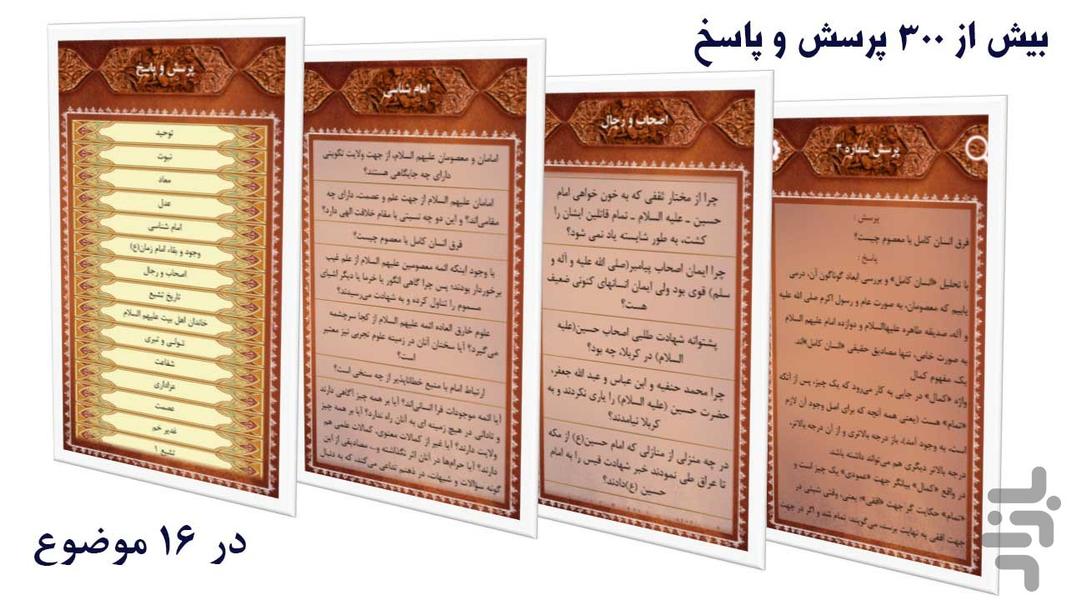 بیش از ۳۰۰ پرسش و پاسخ
پرسش و پاسخ
توحید
نبوت
معاد
عدل
امام شناسی
وجود و بقاء امام زمان(ع)
اصحاب و رجال
تاریخ تشیع
خاندان اهل بیت علیهم السلام
تولی و تبری
شفاعت
عزاداری
عصمت
غدیر خم
تشیع ۱
امام شناسی
امامان و معصومان علیهم السلام، از جهت ولایت تکوینی
دارای چه جایگاهی هستند؟
امامان علیهم السلام از جهت علم و عصمت، دارای چه
مقامی‌اند؟ و این دو چه نسبتی با مقام خلافت الهی دارد؟
فرق انسان کامل با معصوم چیست؟
با وجود اینکه ائمه معصومین علیهم السلام از علم غیب
برخوردار بودند؛ پس چرا گاهی انگور یا خرما یا دیگر اشیای
مسموم را تناول کرده و به شهادت می‌رسیدند؟
علوم خارق العاده ائمه علیهم السلام از کجا سرچشمه
می‌گیرد؟ آیا سخنان آنان در زمینه علوم تجربی نیز معتبر
است؟
ارتباط امام با منبع خطاناپذیر از چه سنخی است؟
آیا ائمه موجودات فرا انسانی‌اند؟ آیا بر همه چیز آگاهی دارند
و نادانی در هیچ زمینه ای به آنان راه ندارد؟ آیا بر همه چیز
ولایت دارند؟ آیا غیر از کمالات معنوی، کمالات علمی هم
دارند؟ آیا حرام‌ها در آنان اثر نگذاشته و... مصادیقی از این
گونه سؤالات و شبهات، در ذهنیم تداعی می‌کند، که به دنبال
اصحاب و رجال
چرا از مختار ثقفی که به خون خواهی امام
حسین ـ علیه السلام ـ تمام قاتلین ایشان را
کشت، به طور شایسته یاد نمی شود؟
چرا ایمان اصحاب پیامبر(صلی الله علیه و آله و
سلم) قوی بود ولی ایمان انسانهای کنونی ضعیف
هست؟
پشتوانه شهادت طلبی اصحاب حسین(علیه
السلام) در کربلا، چه بود؟
چرا محمد حنفیه و ابن عباس و عبد الله جعفر،
حضرت حسین (علیه السلام) را یاری نکردند و به
کربلا نیامدند؟
در چه منزلی از منازلی که امام حسین(ع) از مکه
تا عراق طی نمودند خبر شهادت قیس را به امام
حسین (ع)دادند؟
پرسش شماره ۳
پرسش :
فرق انسان کامل با معصوم چیست؟
پاسخ :
با تحلیل «انسان کامل» و بررسی ابعاد گوناگون آن، درمی
یابیم که معصومان، به صورت عام و رسول اکرم صلی الله علیه
و آله، صدیقه طاهره علیهاالسلام و دوازده امام علیهم السلام
به صورت خاص، تنها مصادیق حقیقی «انسان کامل»اند.
یک. مفهوم کمال
واژه «کمال» در جایی به کار می‌رود که یک چیز، پس از آنکه
«تمام» هست (یعنی همه آنچه که برای اصل وجود آن لازم
است، به وجود آمد)، باز درجه بالاتری و از آن درجه بالاتر،
درجه بالاتر دیگری هم می‌تواند داشته باشد.
در واقع «کمال» بیانگر جهت «عمودی» یک چیز است و
«تمام» حکایت گر جهت «افقی»؛ یعنی، وقتی شیئی در
جهت افقی به نهایت برسد، می‌گویند: تمام شد و اگر در جهت
در ۱۶ موضوع
بازار